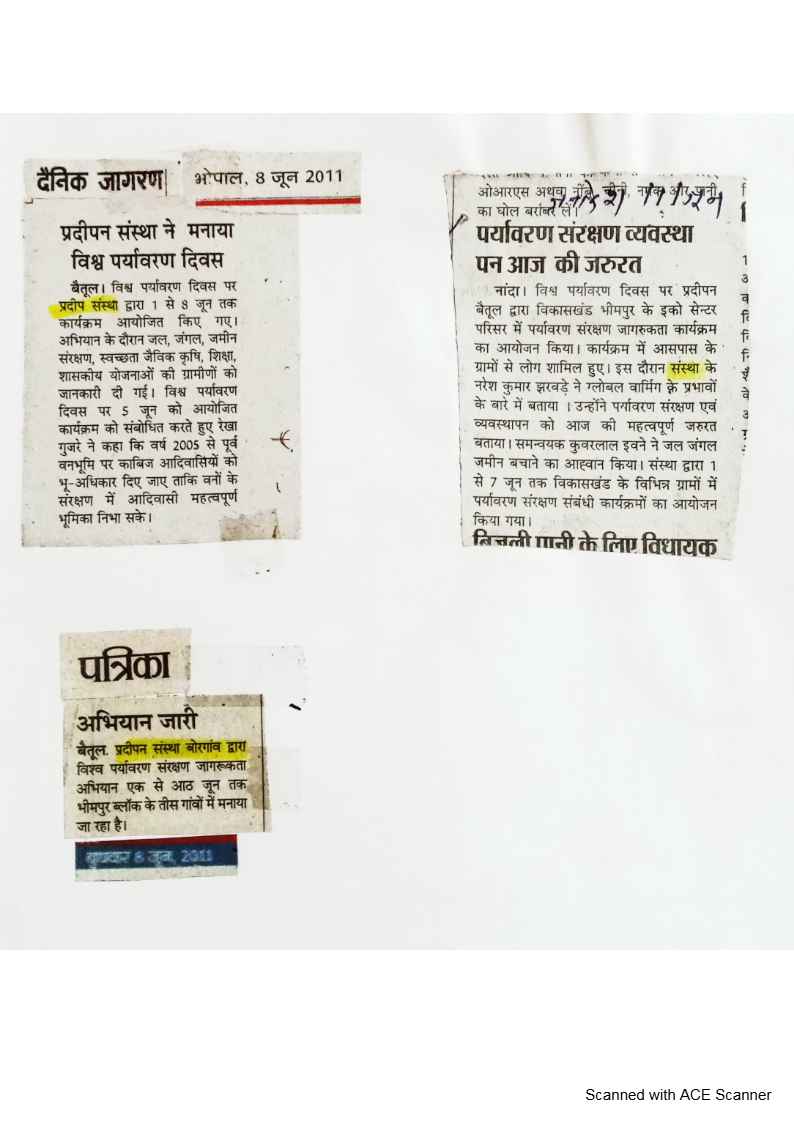 दैनिक जागरण
भोपाल, 8 जून 2011
प्रदीपन संस्था ने मनाया
विश्व पर्यावरण दिवस
बैतूल। विश्व पर्यावरण दिवस पर
प्रदीप संस्था द्वारा 1 से 8 जून तक
कार्यक्रम आयोजित किए गए।
अभियान के दौरान जल, जंगल, जमीन
संरक्षण, स्वच्छता जैविक कृषि, शिक्षा,
शासकीय योजनाओं की ग्रामीणों को
जानकारी दी गई। विश्व पर्यावरण
दिवस पर 5 जून को आयोजित
कार्यक्रम को संबोधित करते हुए रेखा
गुजरे ने कहा कि वर्ष 2005 से पूर्व
वनभूमि पर काबिज आदिवासियों को
भू-अधिकार दिए जाए ताकि वनों के
संरक्षण में आदिवासी महत्वपूर्ण
भूमिका निभा सके।
ओआरएस अथवा नींबू, चीनी, नमक और पानी
का घोल बराबर लें।
पर्यावरण संरक्षण व्यवस्था
पन आज की जरुरत
नांदा। विश्व पर्यावरण दिवस पर प्रदीपन
बैतूल द्वारा विकासखंड भीमपुर के इको सेन्टर
परिसर में पर्यावरण संरक्षण जागरुकता कार्यक्रम
का आयोजन किया। कार्यक्रम में आसपास के
ग्रामों से लोग शामिल हुए। इस दौरान संस्था के
नरेश कुमार झरबड़े ने ग्लोबल वार्मिग के प्रभावों
के बारे में बताया । उन्होंने पर्यावरण संरक्षण एवं
व्यवस्थापन को आज की महत्वपूर्ण जरुरत
बताया। समन्वयक कुवरलाल इवने ने जल जंगल
जमीन बचाने का आह्वान किया। संस्था द्वारा 1
से 7 जून तक विकासखंड के विभिन्न ग्रामों में
पर्यावरण संरक्षण संबंधी कार्यक्रमों का आयोजन
किया गया।
बिजली पानी के लिए विधायक
पत्रिका
अभियान जारी
बैतूल. प्रदीपन संस्था बोरगांव द्वारा
विश्व पर्यावरण संरक्षण जागरूकता
अभियान एक से आठ जून तक
भीमपुर ब्लॉक के तीस गांवों में मनाया
जा रहा है।
बुधवार 8 जून, 2011
Scanned with ACE Scanner